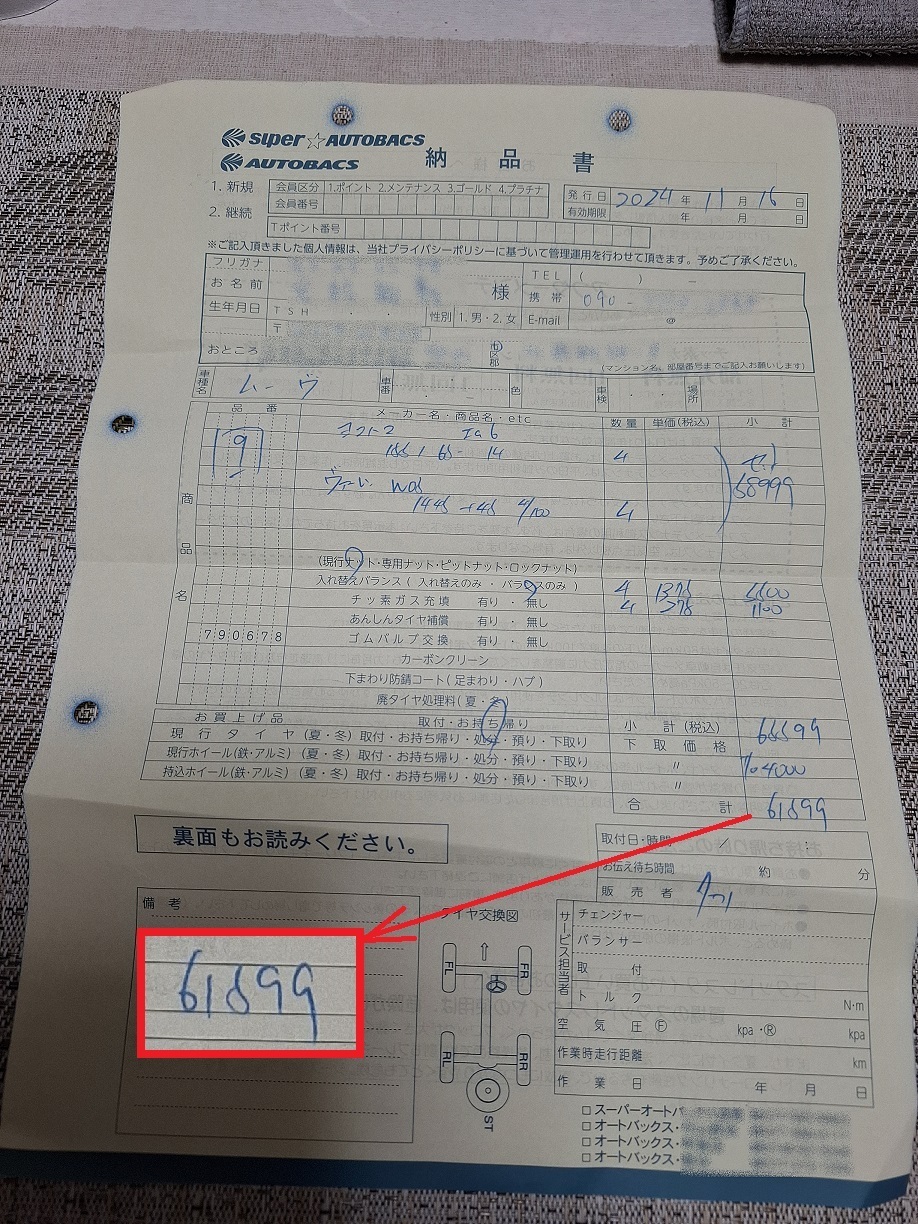 Super☆AUTOBACS
AUTOBACS 納品書
1. 新規 会員区分 1.ポイント 2.メンテナンス 3.ゴールド 4.プラチナ
会員番号
発行日 2024年 11月 16日
2. 継続 有効期限 年 月 日
Tポイント番号
※ご記入頂きました個人情報は、当社プライバシーポリシーに基づいて管理運用を行わせて頂きます。予めご了承ください。
フリガナ TEL ( ) －
お名前 様 携帯 090-
生年月日 T S H ・ ・ 性別 1.男・2.女 E-mail @
〒
おところ 市区郡 (マンション名、部屋番号までご記入お願いします)
車種名 ムーヴ 車番 色 車検 ・ ・ 場所
品番 メーカー名・商品名・etc 数量 単価(税込) 小計
商品名
155/65-14 4
58999
4
(現行ナット・専用ナット・ピットナット・ロックナット)
入れ替えバランス (入れ替えのみ・バランスのみ) 4 1375 5500
チッ素ガス充填 有り・無し 4 275 1100
あんしんタイヤ補償 有り・無し
790678 ゴムバルブ交換 有り・無し
カーボンクリーン
下まわり防錆コート(足まわり・ハブ)
廃タイヤ処理料(夏・冬)
お買上げ品 取付・お持ち帰り 小計(税込) 65599
現行タイヤ (夏・冬) 取付・お持ち帰り・処分・預り・下取り 下取価格
現行ホイール(鉄・アルミ) (夏・冬) 取付・お持ち帰り・処分・預り・下取り 〃 4000
持込ホイール(鉄・アルミ) (夏・冬) 取付・お持ち帰り・処分・預り・下取り 〃
合計 61599
裏面もお読みください。
取付日・時間 / :
お伝え待ち時間 約 分
販売者
備考
61599
タイヤ交換図
FL FR
RL RR
ST
サービス担当者
チェンジャー
バランサー
取付
トルク N・m
空気圧 Ⓕ kpa・Ⓡ kpa
作業時走行距離 km
作業日 年 月 日
□スーパーオートバ
□オートバックス・
□オートバックス・
□オートバックス・